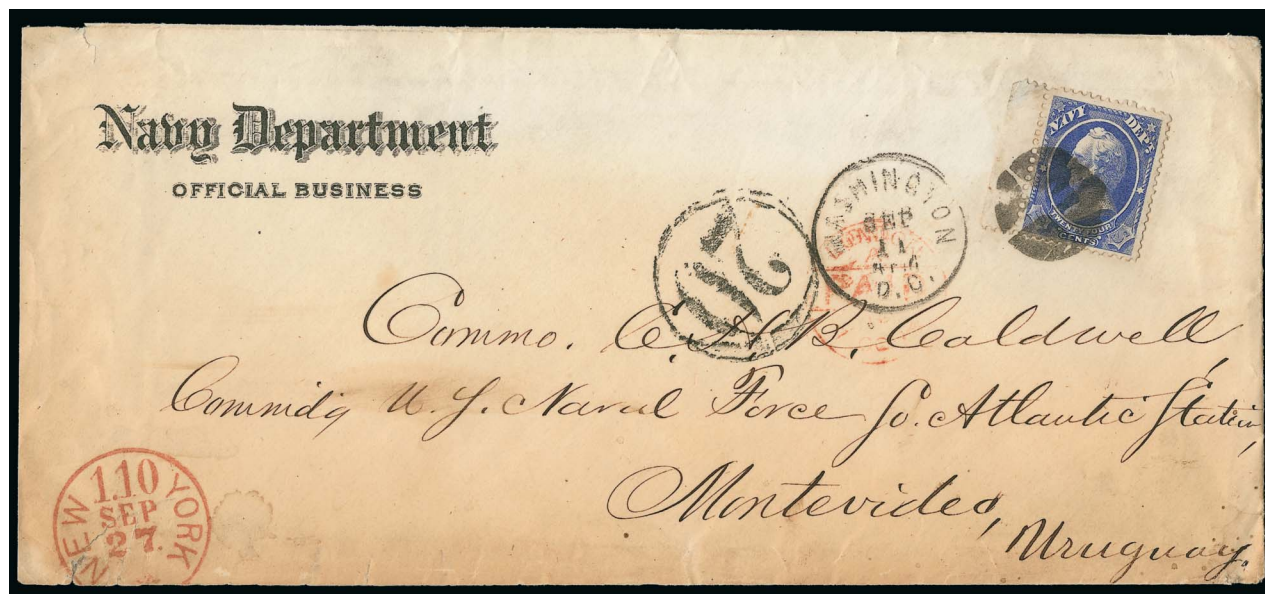 Navy Department
OFFICIAL BUSINESS
NAVY DEPT.
TWENTY FOUR
CENTS
WASHINGTON
SEP
11
D.C.
20
PAID
Commo. C. H. B. Caldwell,
Commdg U. S. Naval Force So. Atlantic Station,
Montevideo,
Uruguay.
NEW YORK
1.10
SEP
27.